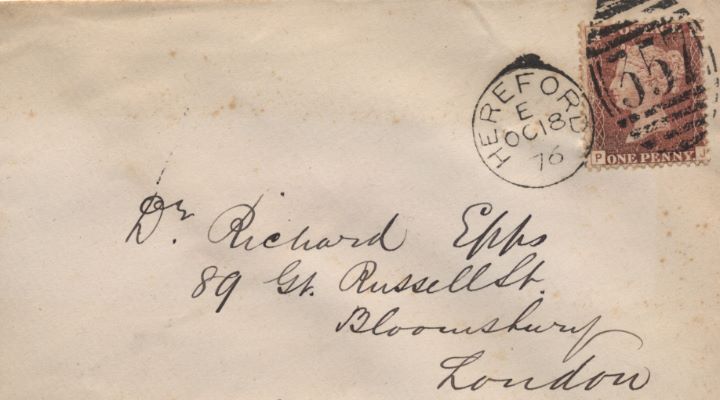 HEREFORD
E
OC 18
76
357
P ONE PENNY J
Dr. Richard Epps
89 Gt. Russell St.
Bloomsbury
London